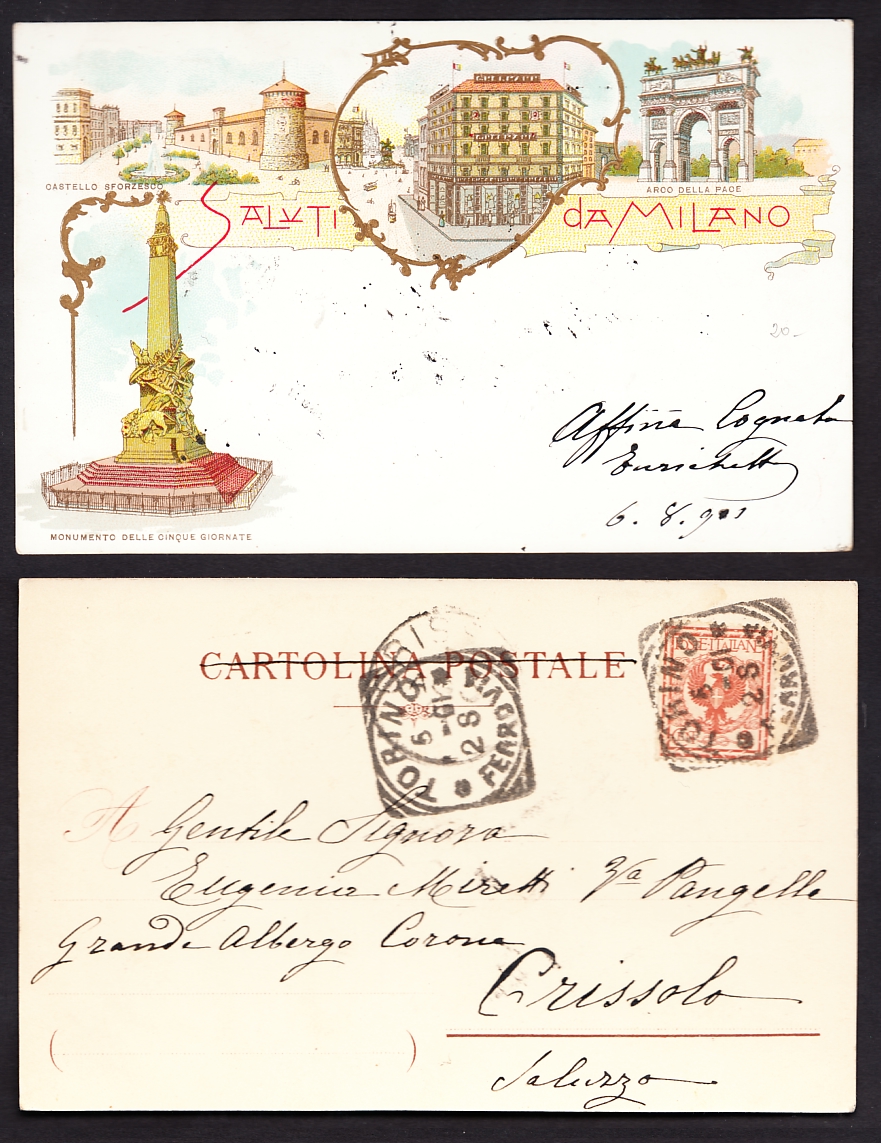 CASTELLO SFORZESCO
ARCO DELLA PACE
SALUTI
DA MILANO
20-
Affma Cognata
6. 8. 901
MONUMENTO DELLE CINQUE GIORNATE
CARTOLINA POSTALE
TORINO
FERROVIA
TORINO
FERROVIA
POSTE ITALIANE
A Gentile Signora
Eugenia Miretti Va Pangella
Grande Albergo Corona
Crissolo
Saluzzo